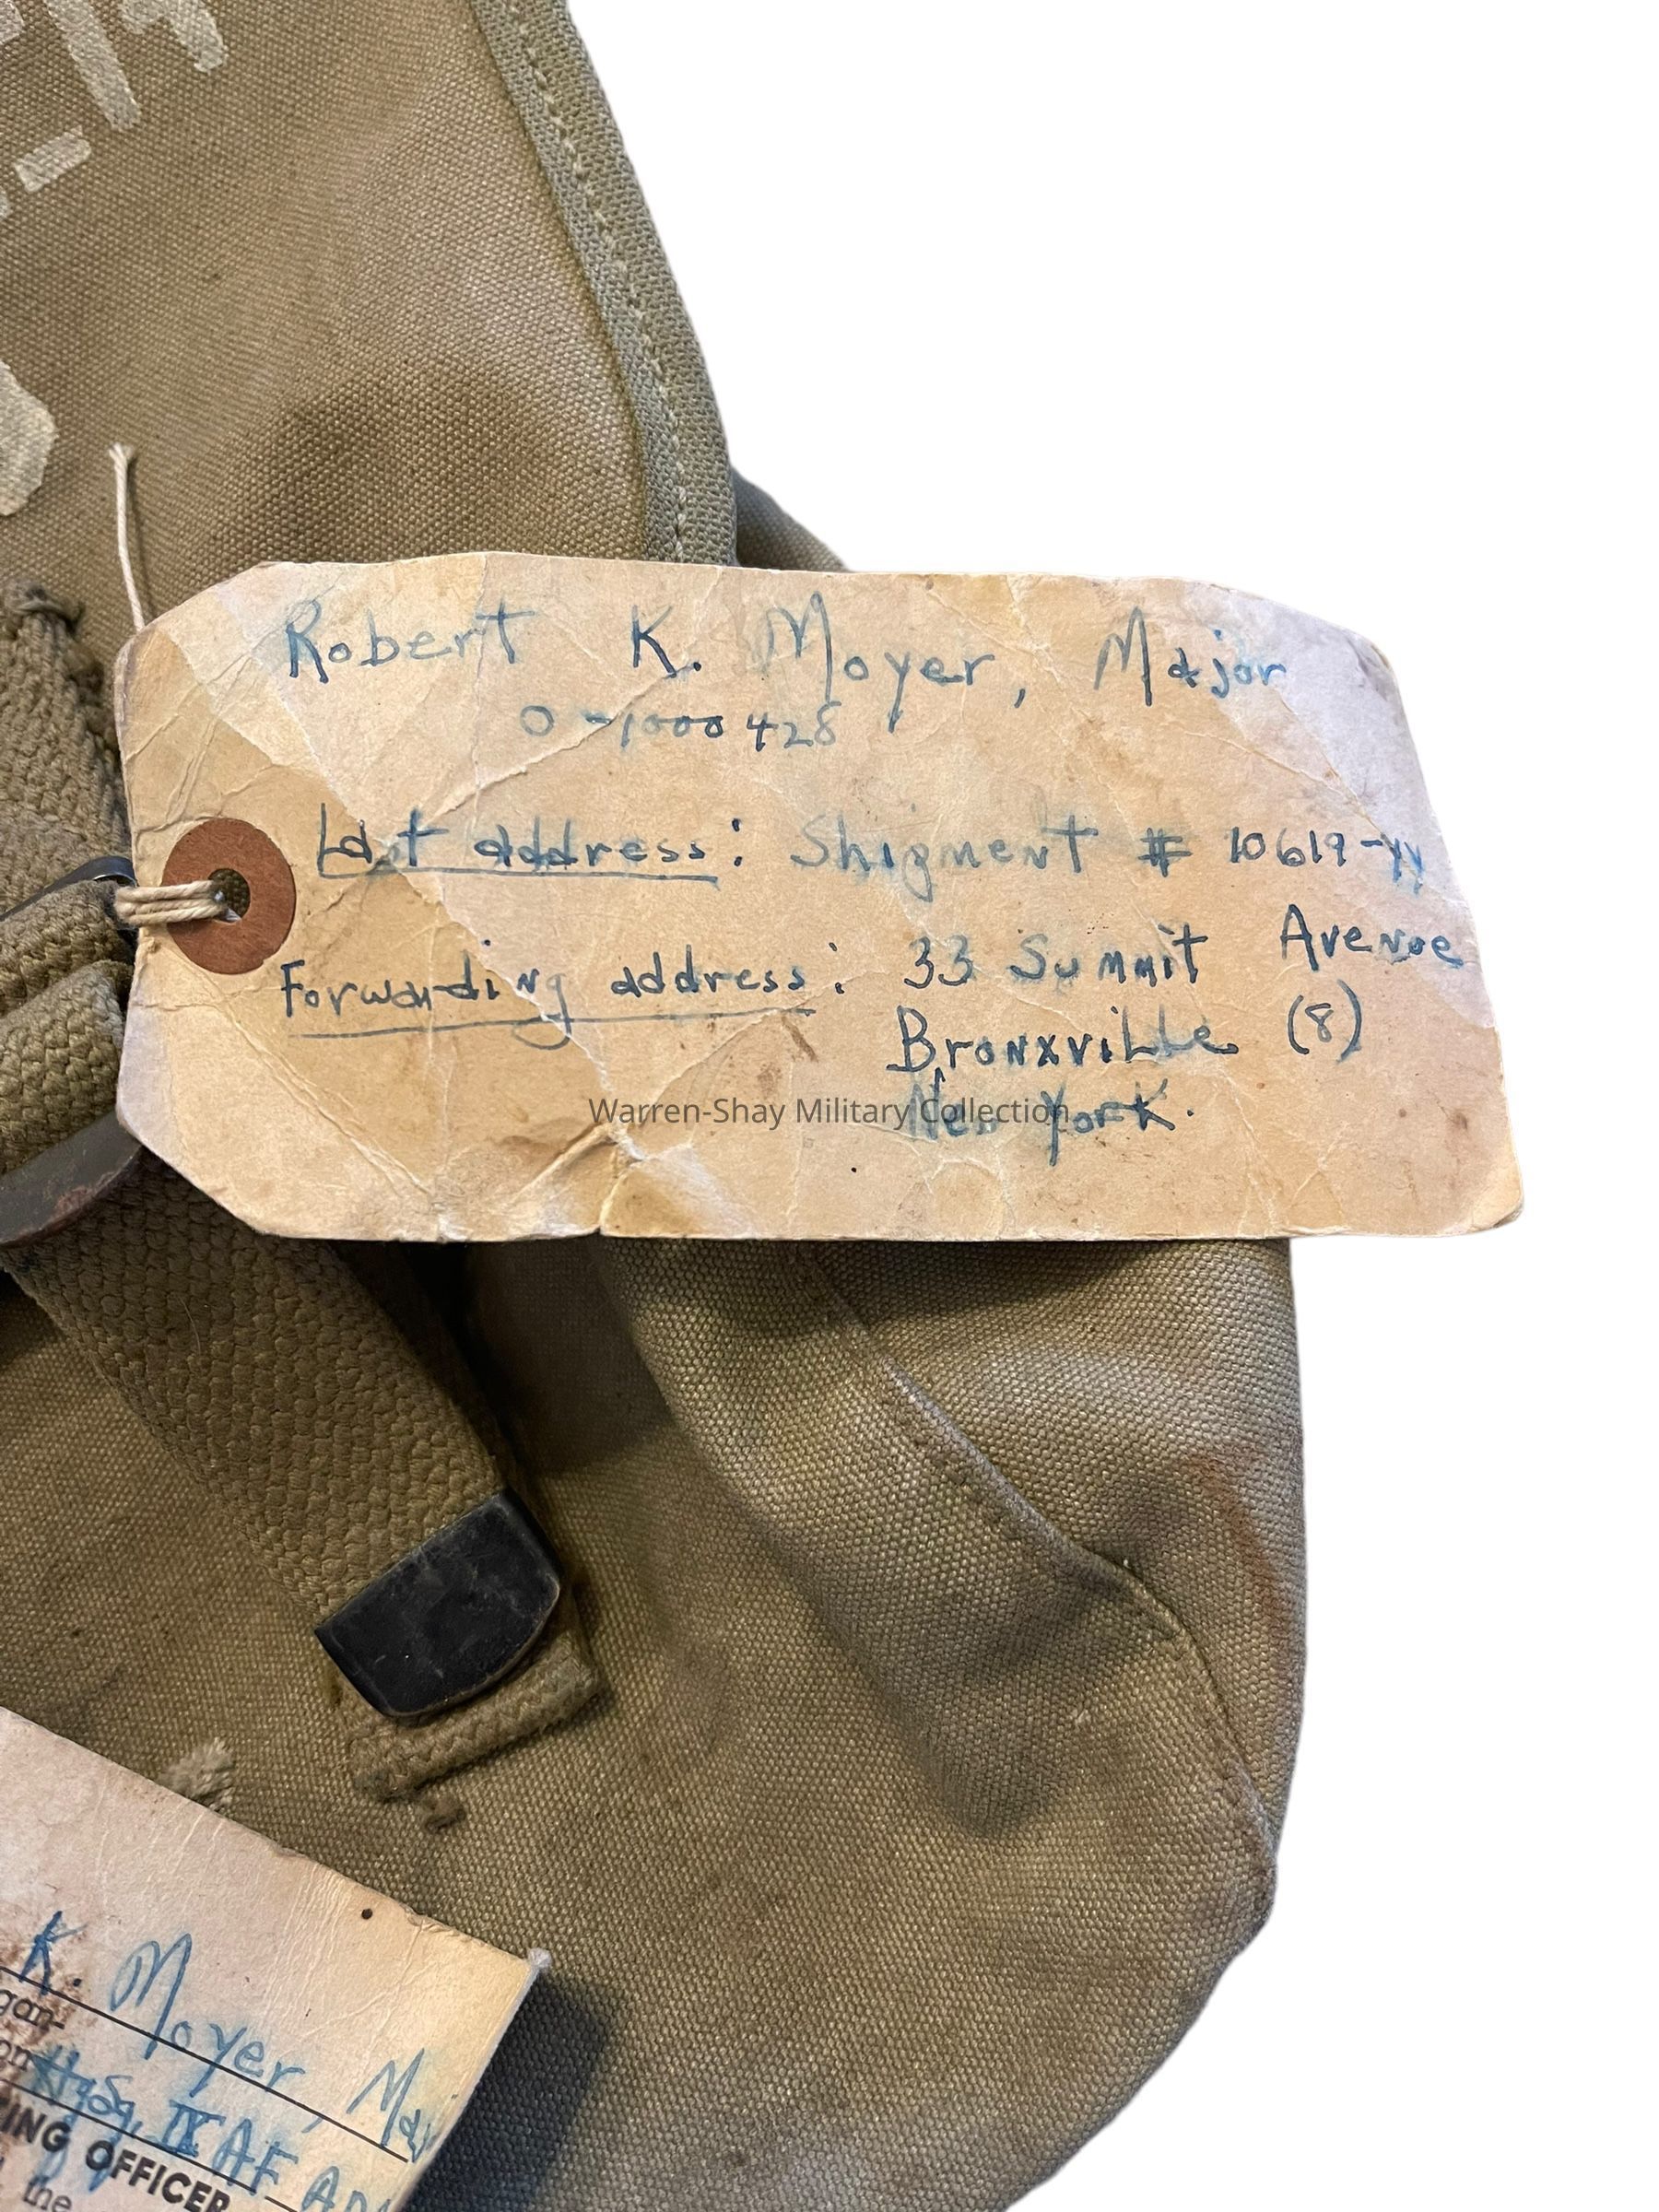 Robert K. Moyer, Major
O-1000428
Last address: Shipment # 10619-yy
Forwarding address: 33 Summit Avenue
Bronxville (8)
New York.
Warren-Shay Military Collection
K. Moyer, Maj
gan-
on HqSq, IX AF AD
TING OFFICER
the